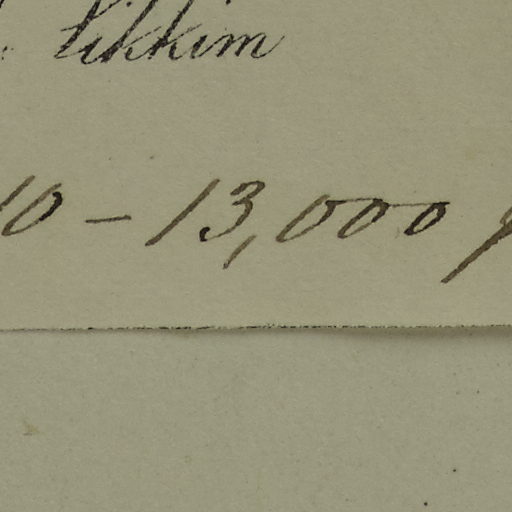 Sikkim
10 - 13,000